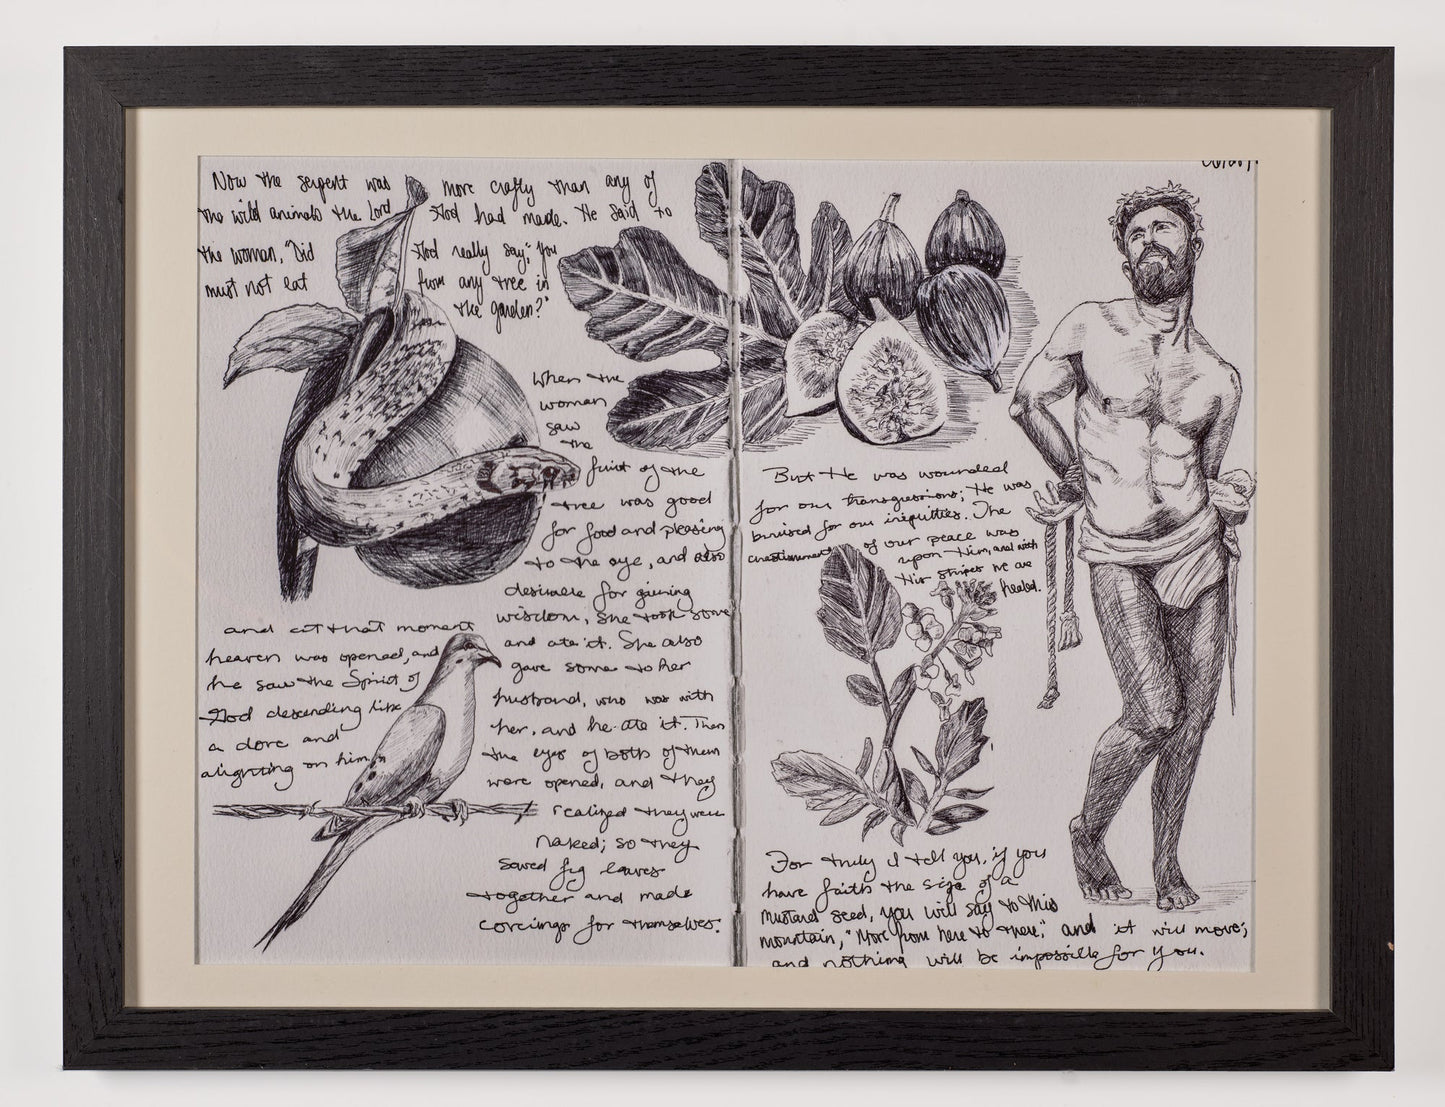 Now the serpent was more crafty than any of
the wild animals the Lord God had made. He said to
the woman, "Did God really say, "You
must not eat from any tree in
the garden?"
When the
woman
saw
the
fruit of the
tree was good
for food and pleasing
to the eye, and also
desirable for gaining
wisdom, she took some
and ate it. She also
gave some to her
husband, who was with
her, and he ate it. Then
the eyes of both of them
were opened, and they
realized they were
naked; so they
sewed fig leaves
together and made
coverings for themselves.
and at that moment
heaven was opened, and
he saw the Spirit of
God descending like
a dove and
alighting on him.
But He was wounded
for our transgressions; He was
bruised for our iniquities. The
chastisement of our peace was
upon Him, and with
His stripes we are
healed.
For truly I tell you, if you
have faith the size of a
mustard seed, you will say to this
mountain, "Move from here to there," and it will move;
and nothing will be impossible for you.